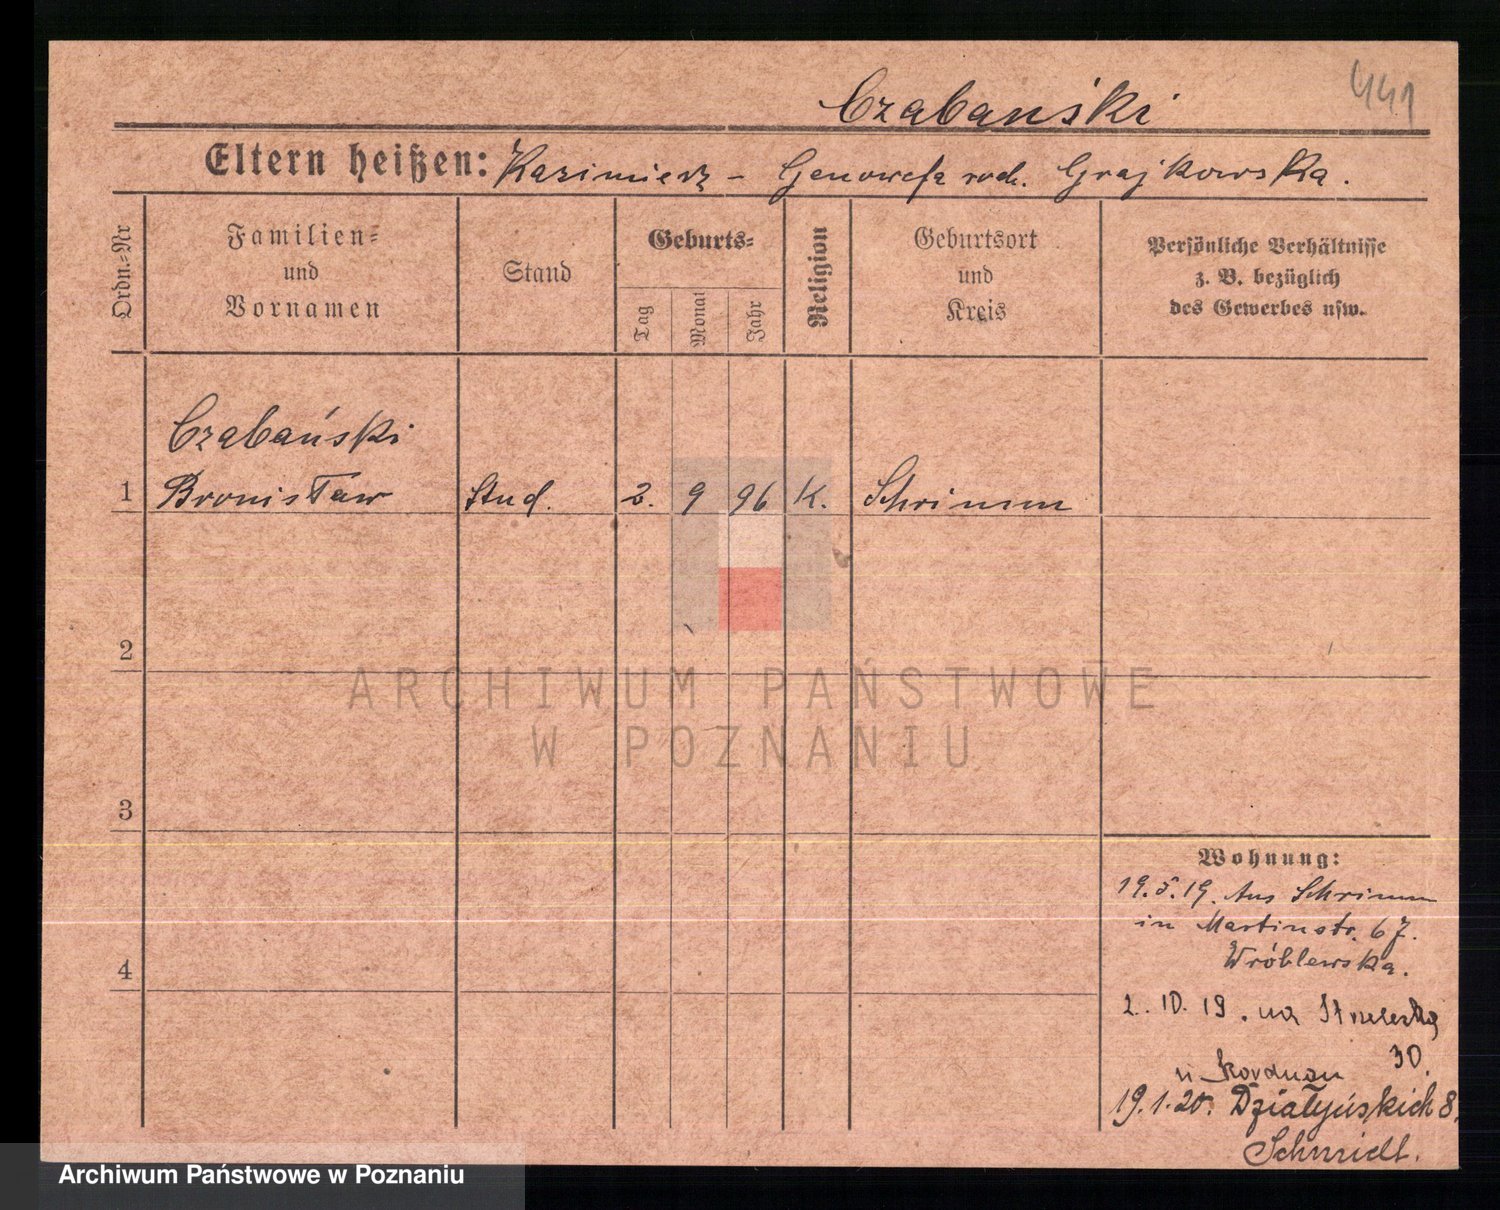 441
Czabański
Eltern heißen: Kazimierz - Genowefa rodz. Grajkowska.
Ordn.-Nr
Familien-
und
Vornamen
Stand
Geburts-
Tag
Monat
Jahr
Religion
Geburtsort
und
Kreis
Persönliche Verhältnisse
z. B. bezüglich
des Gewerbes usw.
Czabański
1 Bronisław Stud. 2. 9 96 K. Schrimm
2
3
4
Wohnung:
19.5.19. Aus Schrimm
in Martinstr. 67.
Wróblewska.
2. 10. 19. na Strzelecką
30.
u
19.1.20. Działyńskich 8.
Schmidt.
ARCHIWUM PAŃSTWOWE
W POZNANIU
Archiwum Państwowe w Poznaniu